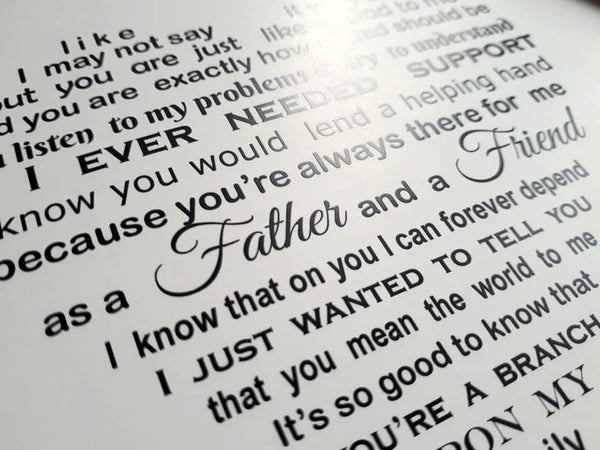 like it
I may not say
but you are just like Dad to me
d you are exactly how Dad should be
listen to my problems try to understand
I EVER NEEDED SUPPORT
know you would lend a helping hand
because you're always there for me
as a Father and a Friend
I know that on you I can forever depend
I JUST WANTED TO TELL YOU
that you mean the world to me
It's so good to know that
YOU'RE A BRANCH
ON MY
ily